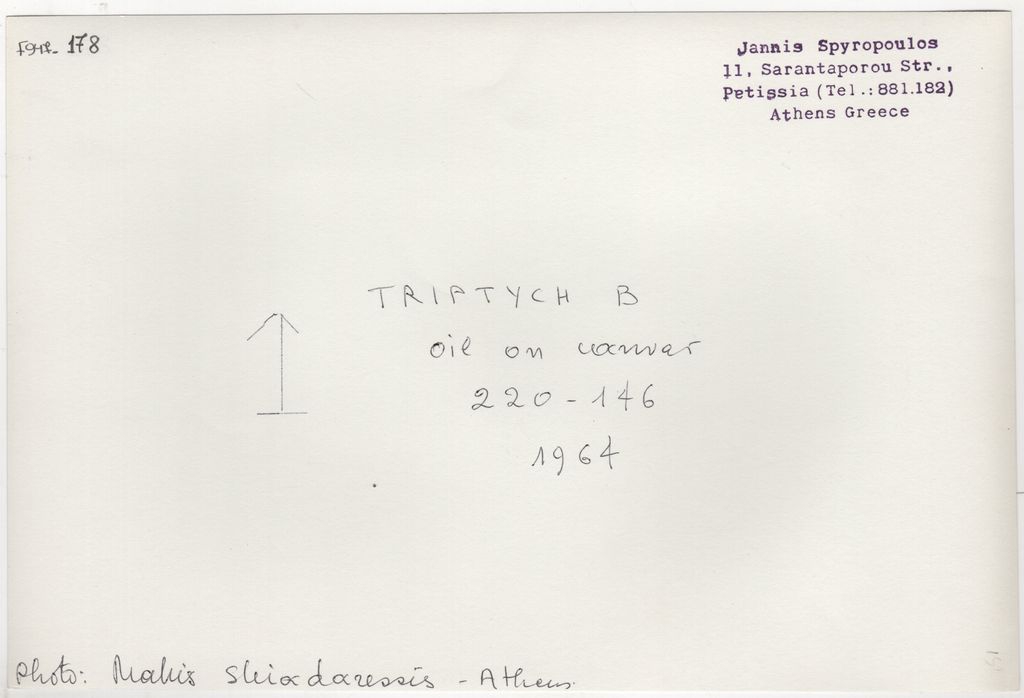 178
Jannis Spyropoulos
11, Sarantaporou Str.,
Petissia (Tel.: 881.182)
Athens Greece
TRIPTYCH B
oil on canvas
220 - 146
1964
Photo: Makis Skiadaressis - Athens